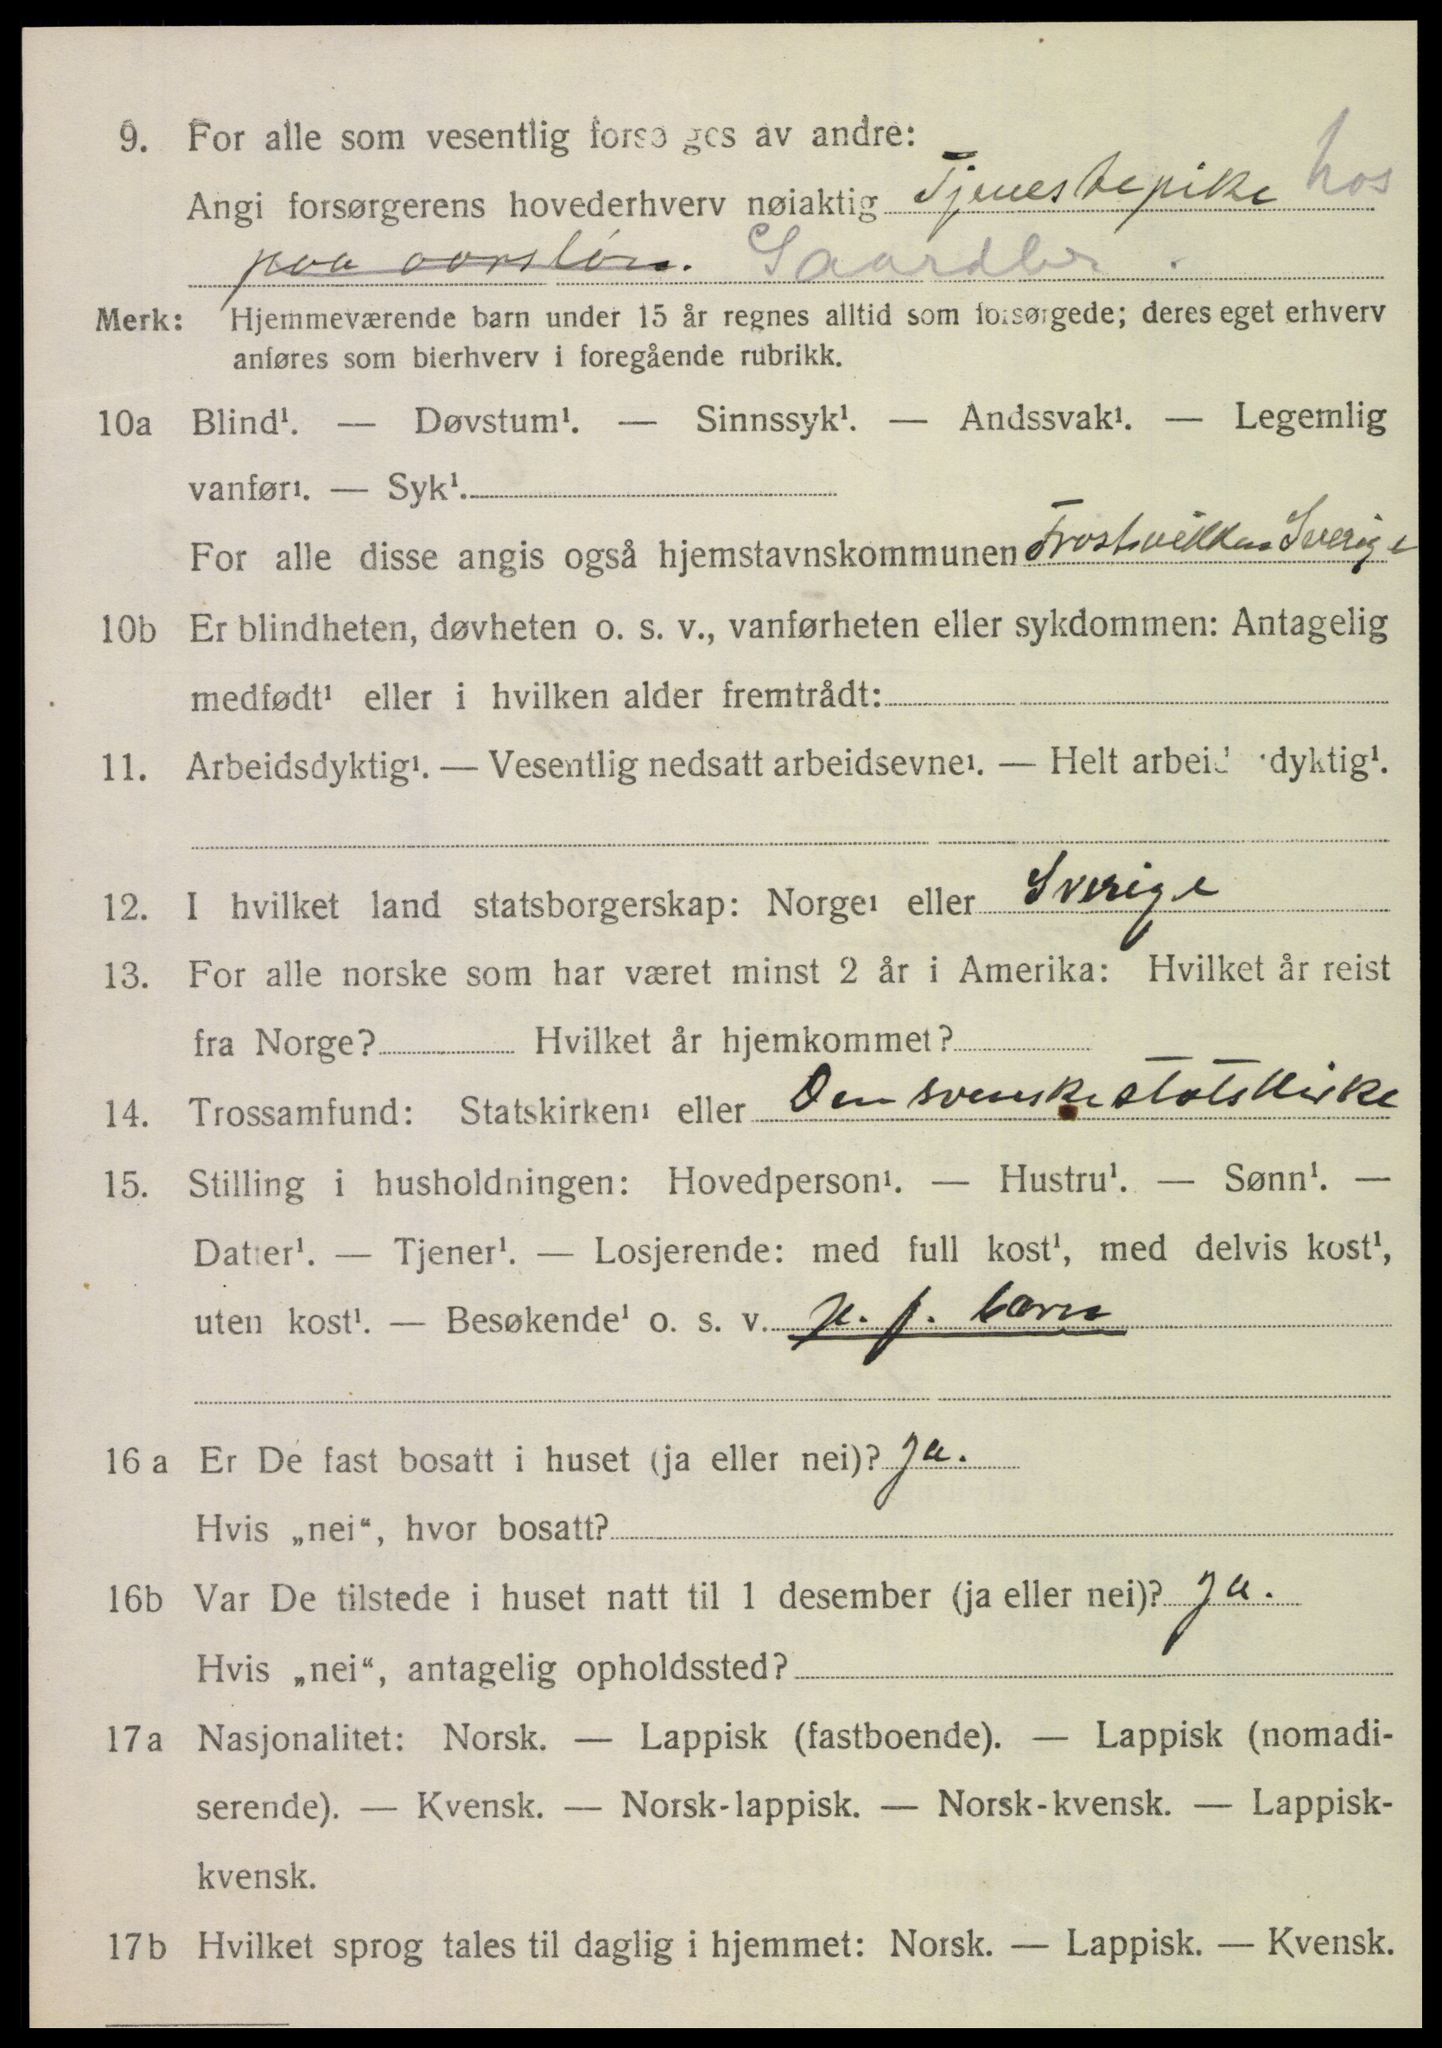 9. For alle som vesentlig forsørges av andre:
Angi forsørgerens hovederhverv nøiaktig Tjenestepike hos
paa aarsløn. Gaardbr.
Merk: Hjemmeværende barn under 15 år regnes alltid som forsørgede; deres eget erhverv
anføres som bierhverv i foregående rubrikk.
10a Blind¹. — Døvstum¹. — Sinnssyk¹. — Andssvak¹. — Legemlig
vanfør¹. — Syk¹.
For alle disse angis også hjemstavnskommunen Frostvikken Sverige
10b Er blindheten, døvheten o. s. v., vanførheten eller sykdommen: Antagelig
medfødt¹ eller i hvilken alder fremtrådt:
11. Arbeidsdyktig¹. — Vesentlig nedsatt arbeidsevne¹. — Helt arbeidsudyktig¹.
12. I hvilket land statsborgerskap: Norge¹ eller Sverige
13. For alle norske som har været minst 2 år i Amerika: Hvilket år reist
fra Norge? Hvilket år hjemkommet?
14. Trossamfund: Statskirken¹ eller Den svenske statskirke
15. Stilling i husholdningen: Hovedperson¹. — Hustru¹. — Sønn¹. —
Datter¹. — Tjener¹. — Losjerende: med full kost¹, med delvis kost¹,
uten kost¹. — Besøkende¹ o. s. v. p. barn
16 a Er De fast bosatt i huset (ja eller nei)? Ja.
Hvis „nei“, hvor bosatt?
16b Var De tilstede i huset natt til 1 desember (ja eller nei)? Ja.
Hvis „nei“, antagelig opholdssted?
17a Nasjonalitet: Norsk. — Lappisk (fastboende). — Lappisk (nomadi-
serende). — Kvensk. — Norsk-lappisk. — Norsk-kvensk. — Lappisk-
kvensk.
17b Hvilket sprog tales til daglig i hjemmet: Norsk. — Lappisk. — Kvensk.